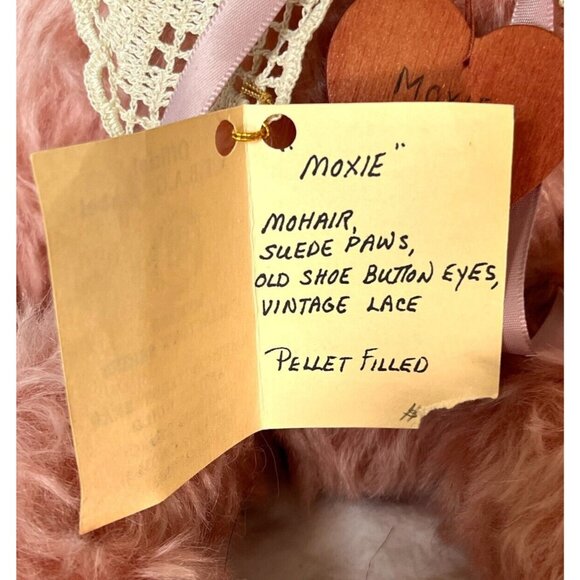 MOXIE
"MOXIE"
MOHAIR,
SUEDE PAWS,
OLD SHOE BUTTON EYES,
VINTAGE LACE
PELLET FILLED
#